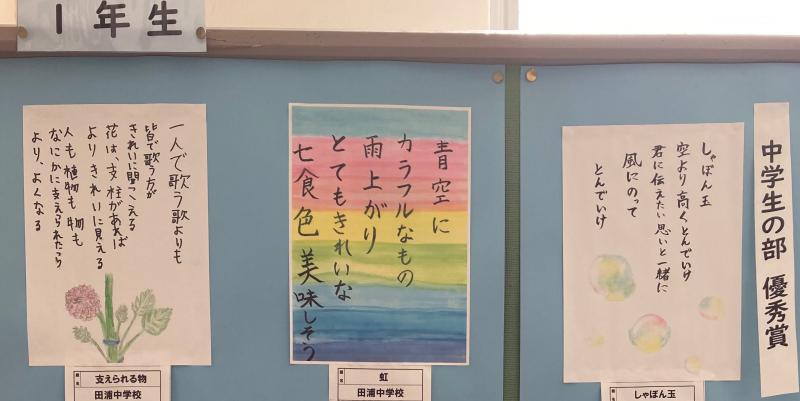 1年生
一人で歌う歌よりも
皆で歌う方が
きれいに聞こえる
花は、支柱があれば
よりきれいに見える
人も植物も物も
なにかに支えられたら
より、よくなる
題名
支えられる物
田浦中学校
青空に
カラフルなもの
雨上がり
とてもきれいな
七食色美味しそう
題名
虹
田浦中学校
しゃぼん玉
空より高くとんでいけ
君に伝えたい思いと一緒に
風にのって
とんでいけ
題
しゃぼん玉
中学生の部 優秀賞